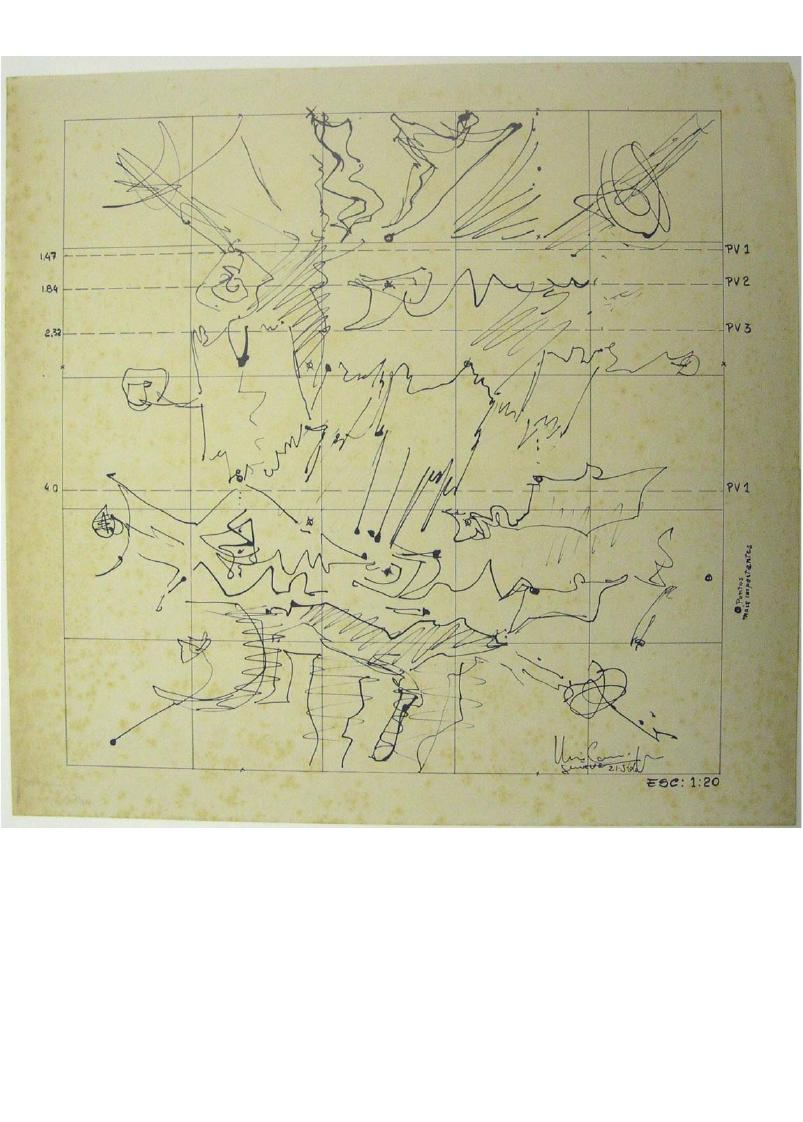 1.47
PV 1
1.84
PV 2
2.32
PV 3
4.0
PV 1
Pontos
mais importantes
ESC: 1:20